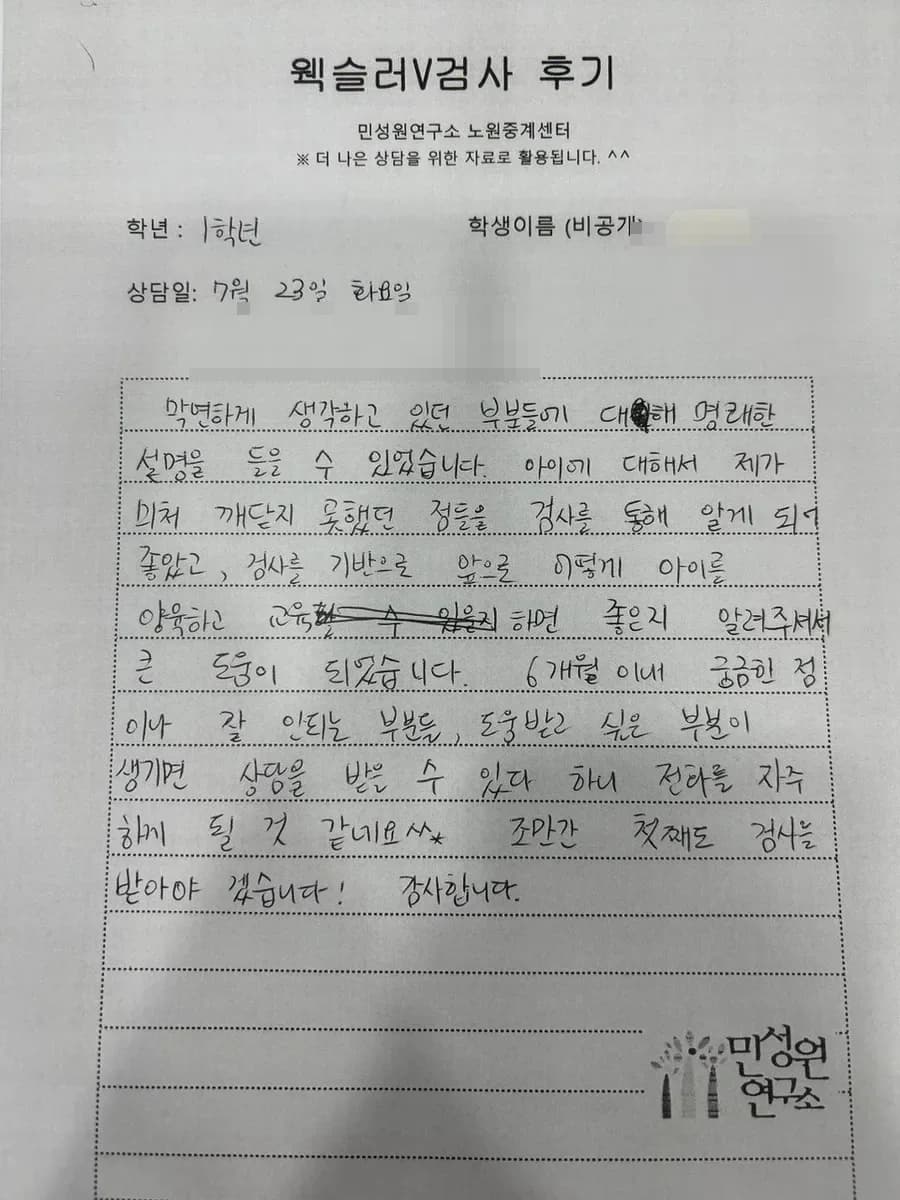 웩슬러V검사 후기
민성원연구소 노원중계센터
※ 더 나은 상담을 위한 자료로 활용됩니다. ^^
학년 : 1학년 학생이름 (비공개)
상담일: 7월 23일 화요일
막연하게 생각하고 있던 부분들에 대해 명쾌한
설명을 들을 수 있었습니다. 아이에 대해서 제가
미처 깨닫지 못했던 점들을 검사를 통해 알게 되어
좋았고, 검사를 기반으로 앞으로 어떻게 아이를
양육하고 교육하면 좋은지 알려주셔서
큰 도움이 되었습니다. 6개월 이내 궁금한 점
이나 잘 안되는 부분들, 도움받고 싶은 부분이
생기면 상담을 받을 수 있다 하니 전화를 자주
하게 될 것 같네요^^* 조만간 첫째도 검사를
받아야 겠습니다! 감사합니다.
민성원
연구소